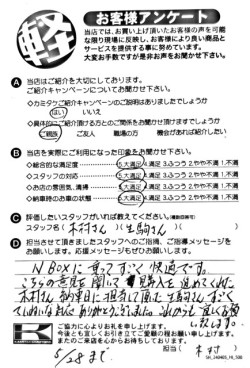 軽
お客様アンケート
当店では、お買い上げ頂いたお客様の声を可能
な限り現場に反映し、お客様により良い商品と
サービスを提供する事に努めています。
大変お手数ですが是非お声をお聞かせ下さい。
A 当店はご紹介を大切にしております。
ご紹介キャンペーンについてお聞かせ下さい。
◇カミタケご紹介キャンペーンのご説明はありましたでしょうか
はい いいえ
◇具体的にご紹介頂ける方とのご関係をお聞かせ頂けますでしょうか
ご親族 ご友人 職場の方 機会があれば紹介したい
B 当店を実際にご利用になった印象をお聞かせ下さい。
◇総合的な満足度 5大満足 4.満足 3.ふつう 2.やや不満 1.不満
◇スタッフの対応 5大満足 4.満足 3.ふつう 2.やや不満 1.不満
◇お店の雰囲気、清掃 5大満足 4.満足 3.ふつう 2.やや不満 1.不満
◇納車時のお車の状態 5大満足 4.満足 3.ふつう 2.やや不満 1.不満
C 評価したいスタッフがいれば教えてください。(複数回答可)
スタッフ名( 木村さん )( 生駒さん )
D 担当させて頂きましたスタッフへのご指導、ご指導メッセージを
お願いします。応援メッセージもぜひお願いします。
N BOXに乗って すごく快適です。
こちらの意見を聞いて 購入を進めてくれた
木村さん 納車日に担当して頂た生駒さん すごく
ていねいな対応 ありがとうございました。これからも宜しくお願い
致します。
ご協力に心よりお礼を申し上げます。
今後とも宜しくお引き立てご愛顧の程お願い申し上げます。
またのご来店を心からお待ちしております。
5/28まで 担当( 木村 )